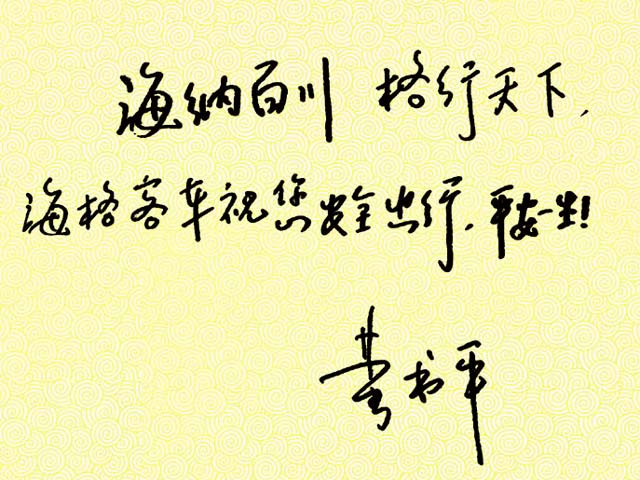 海纳百川 格行天下,
海格客车祝您安全出行,平安一生!
黄书平